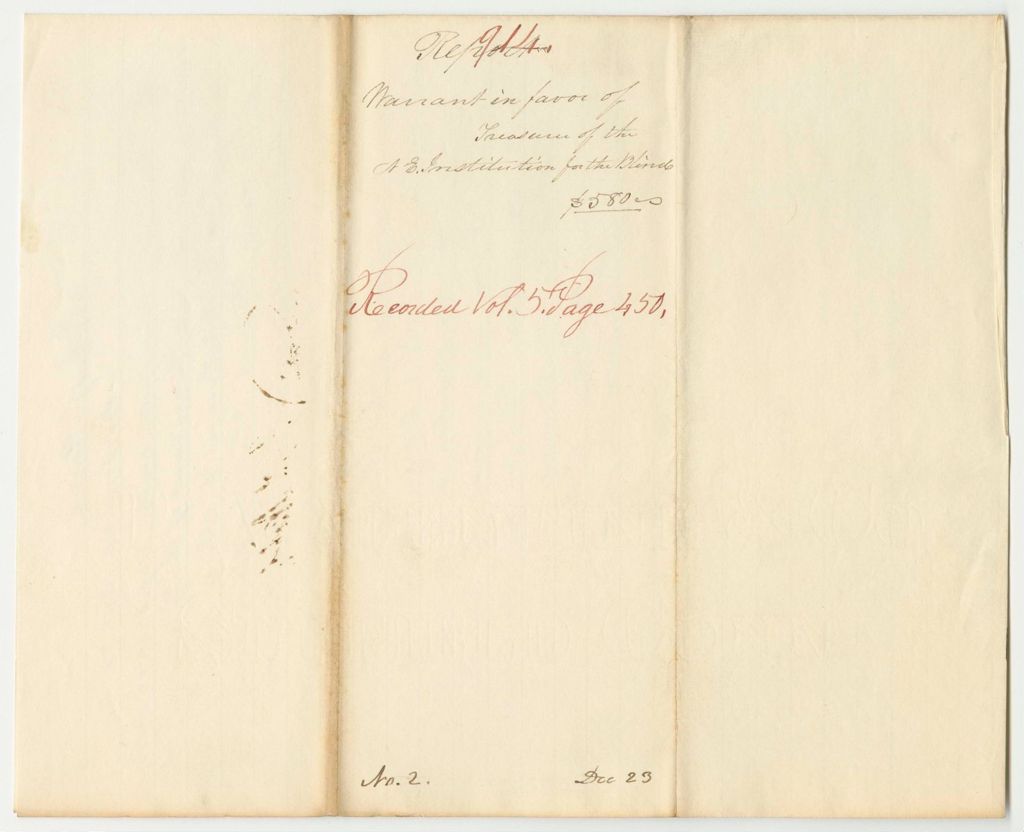 Report 914.
Warrant in favor of
Treasurer of the
N E. Institution for the Blind
$580
Recorded Vol. 5. Page 450,
No. 2. Dec 23